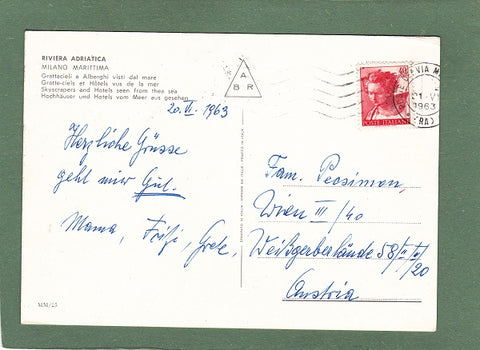 RIVIERA ADRIATICA
MILANO MARITTIMA
Grattacieli e Alberghi visti dal mare
Gratte-ciels et Hôtels vus de la mer
Skyscrapers and Hotels seen from thea sea
Hochhäuser und Hotels vom Meer aus gesehen
20. VI. 1963
Herzliche Grüsse
geht mir Gut.
Mama, Fritzi, Grete,
A
B R
POSTE ITALIANE
VIA M
1963
(RA)
Fam.
Wien III/40
Weißgerberlände 58/II/
20
Austria
MM/25